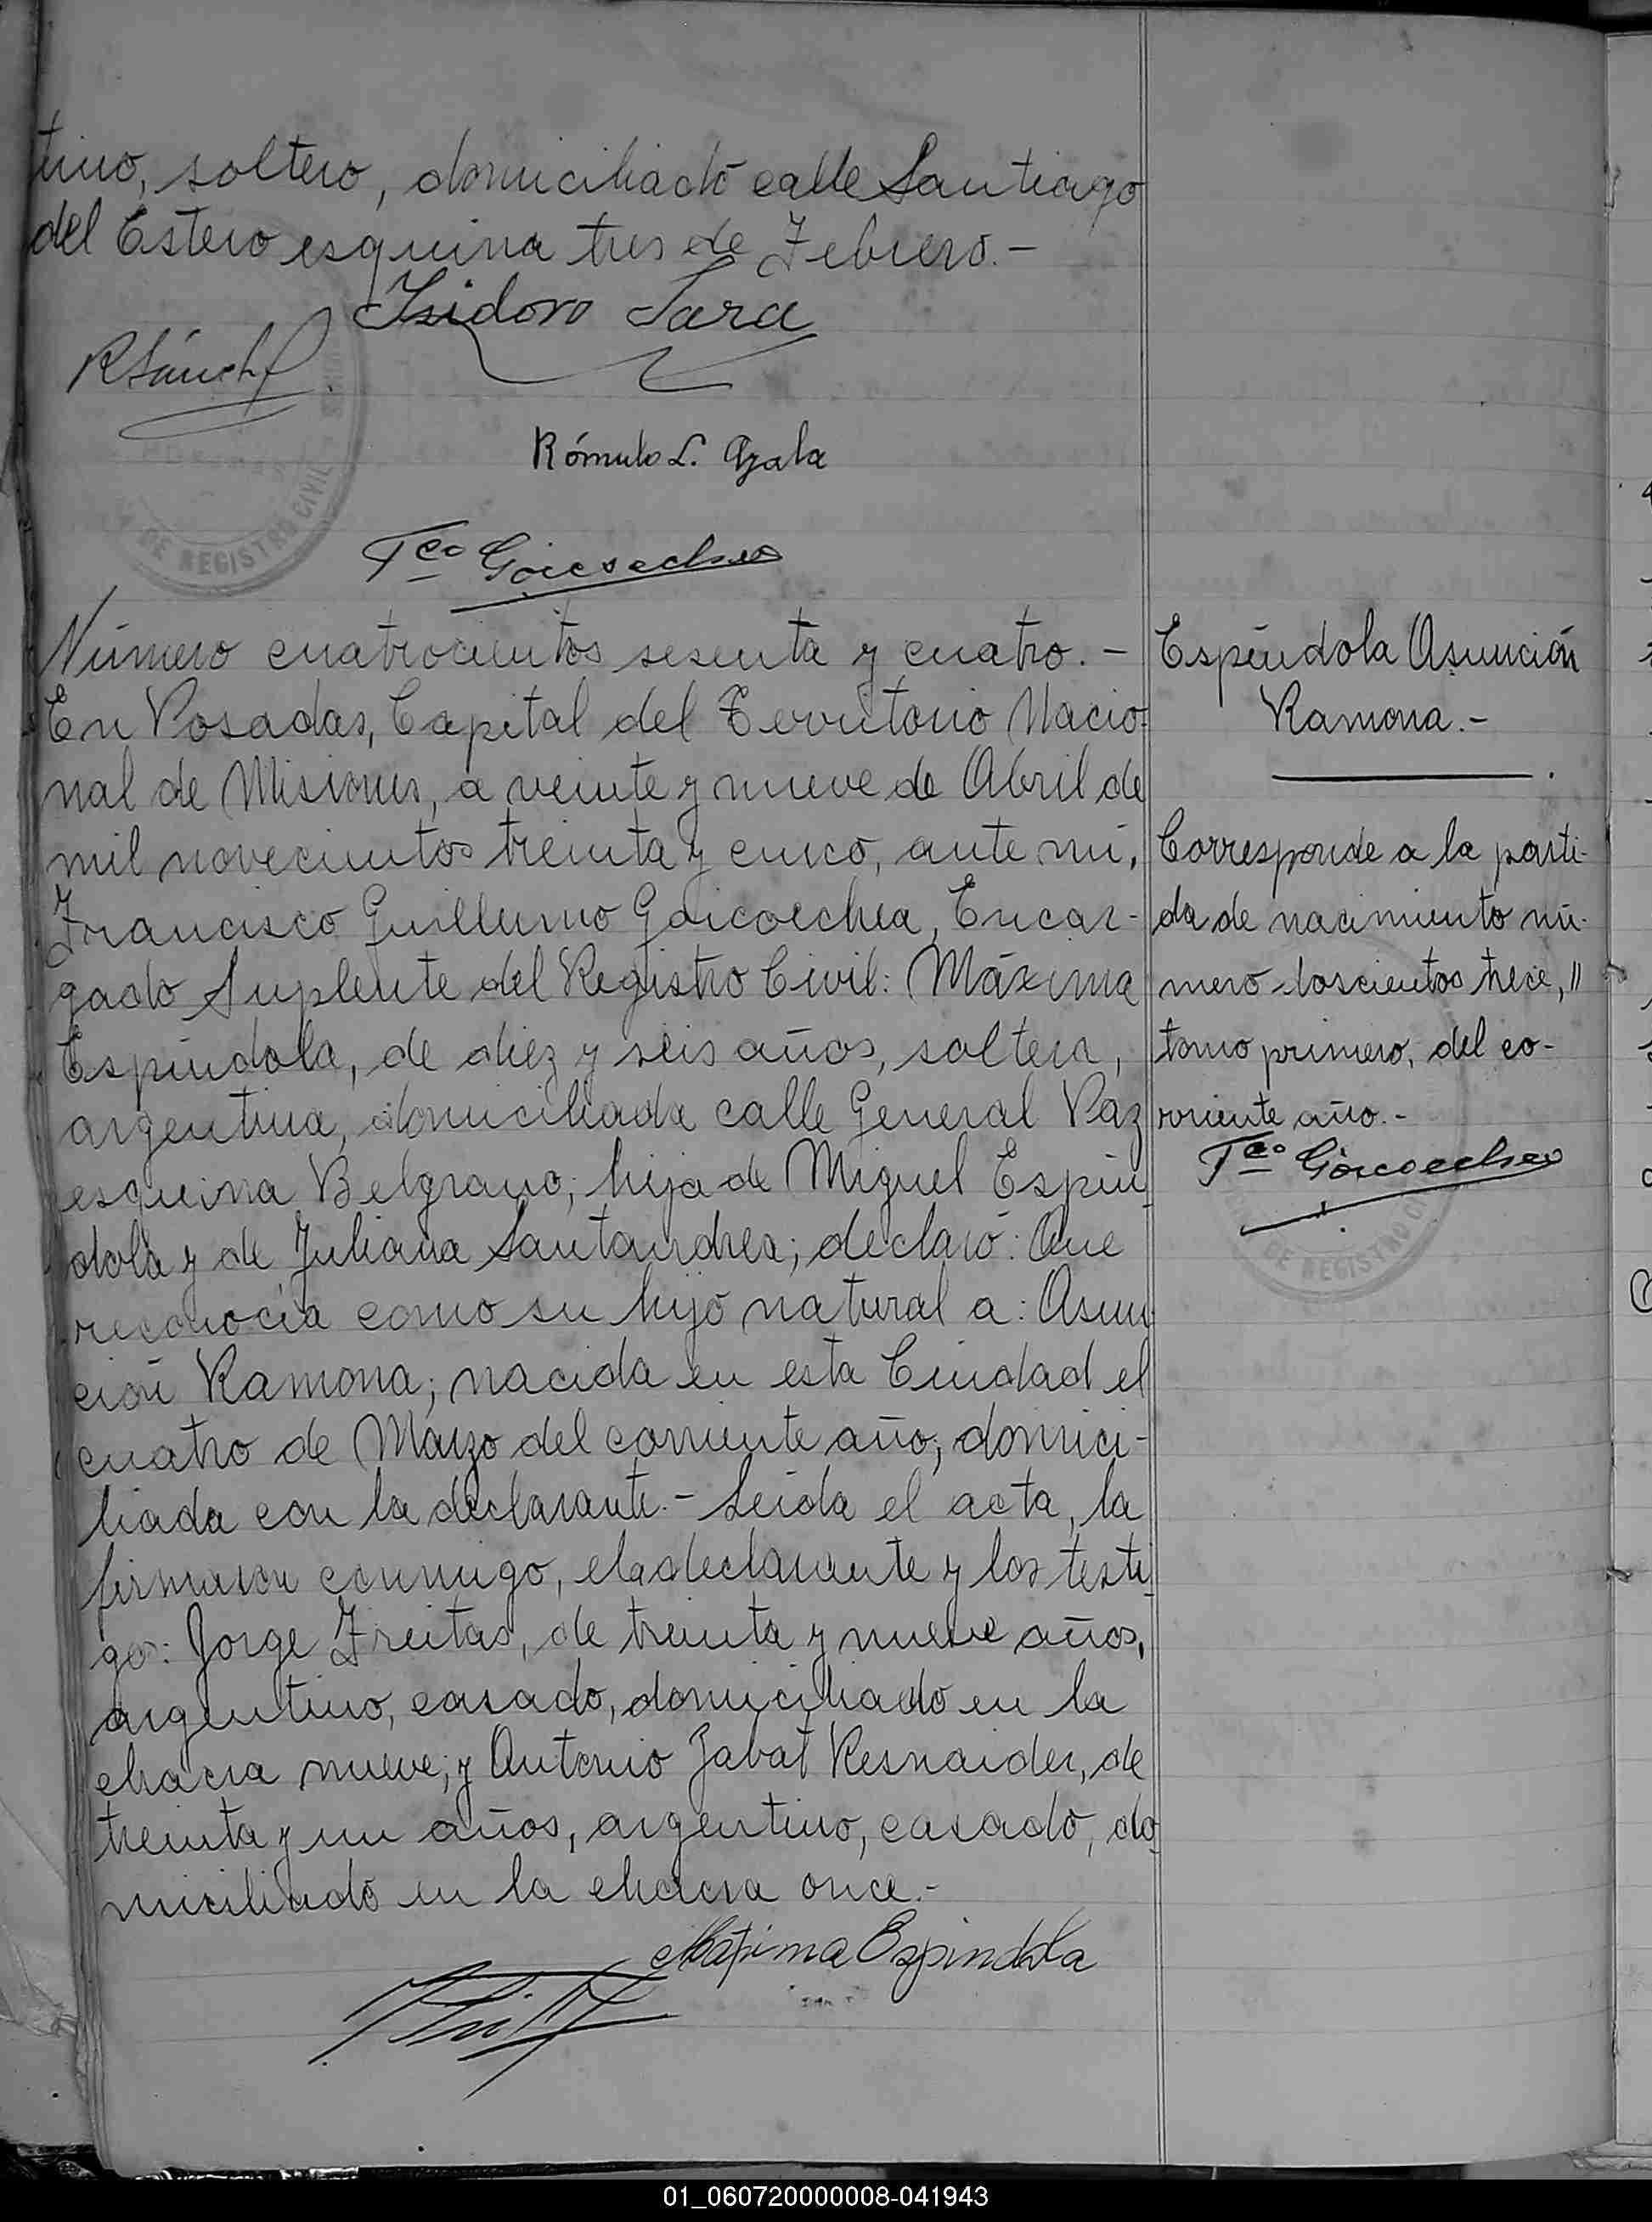 tino, soltero, domiciliado calle Santiago
del Estero esquina tres de Febrero.-
Isidoro Jara
RSánchez
Rómulo L. Ayala
Fco Goicoechea
Número cuatrocientos sesenta y cuatro.-
En Posadas, Capital del Territorio Nacio-
nal de Misiones, a veinte y nueve de Abril de
mil novecientos treinta y cinco, ante mi,
Francisco Guillermo Goicoechea, Encar-
gado Suplente del Registro Civil: Máxima
Espíndola, de diez y seis años, soltera,
argentina, domiciliada calle General Paz
esquina Belgrano; hija de Miguel Espín-
dola y de Juliana Santandrea; declaró: Que
reconocía como su hijo natural a: Asun-
ción Ramona; nacida en esta Ciudad el
cuatro de Marzo del corriente año; domici-
liada con la declarante.- Leida el acta, la
firmaron conmigo, la declarante y los testi-
gos: Jorge Freitas, de treinta y nueve años,
argentino, casado, domiciliado en la
chacra nueve; y Antonio Zabat Resnaider, de
treinta y un años, argentino, casado, do-
miciliado en la chacra once.-
Máxima Espindola
Espíndola Asunción
Ramona.-
Corresponde a la parti-
da de nacimiento nú-
mero doscientos trece, "
tomo primero, del co-
rriente año.-
Fco Goicoechea
DE REGISTRO CIVIL
DE REGISTRO CI
01_060720000008-041943